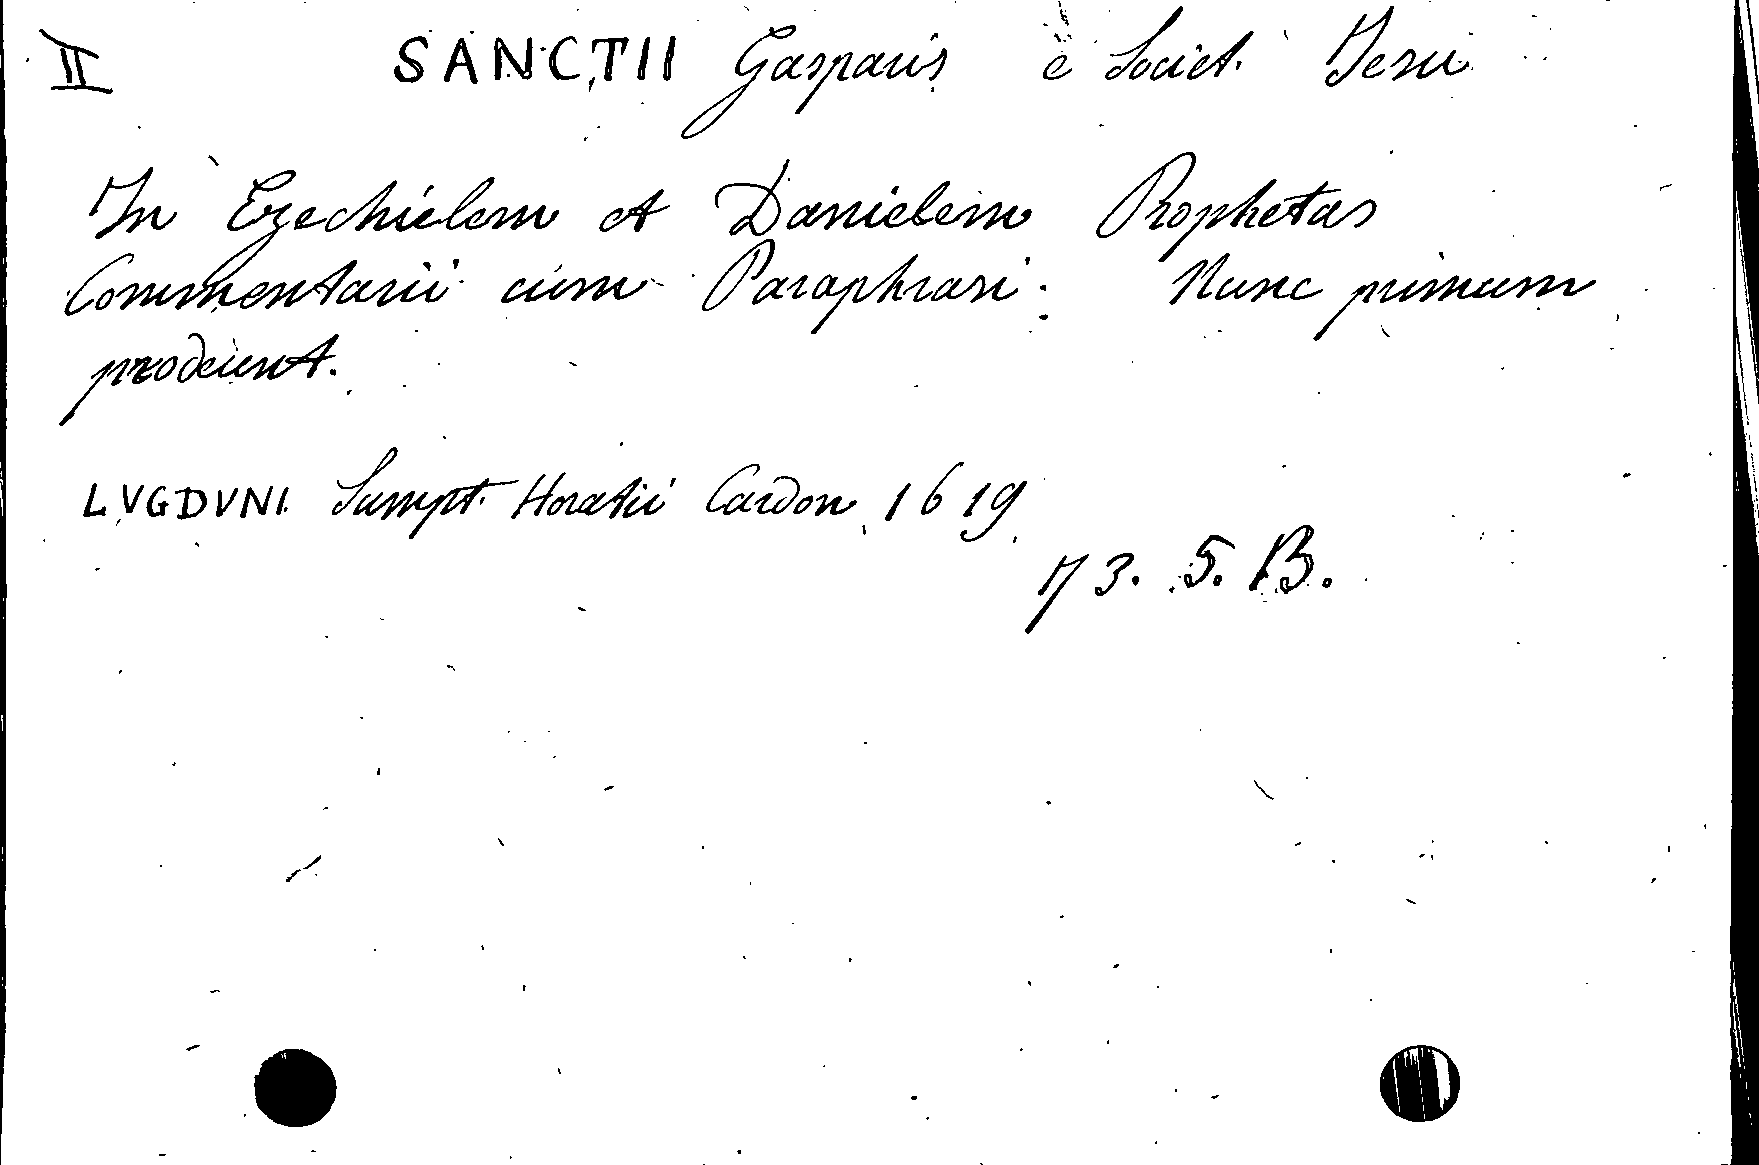 II SANCTII Gasparis e Societ. Iesu
In Ezechielem et Danielem Prophetas
Commentarii cum Paraphrasi. Nunc primum
prodeunt.
LVGDVNI Sumpt. Horatii Cardon 1619
73. 5. B.